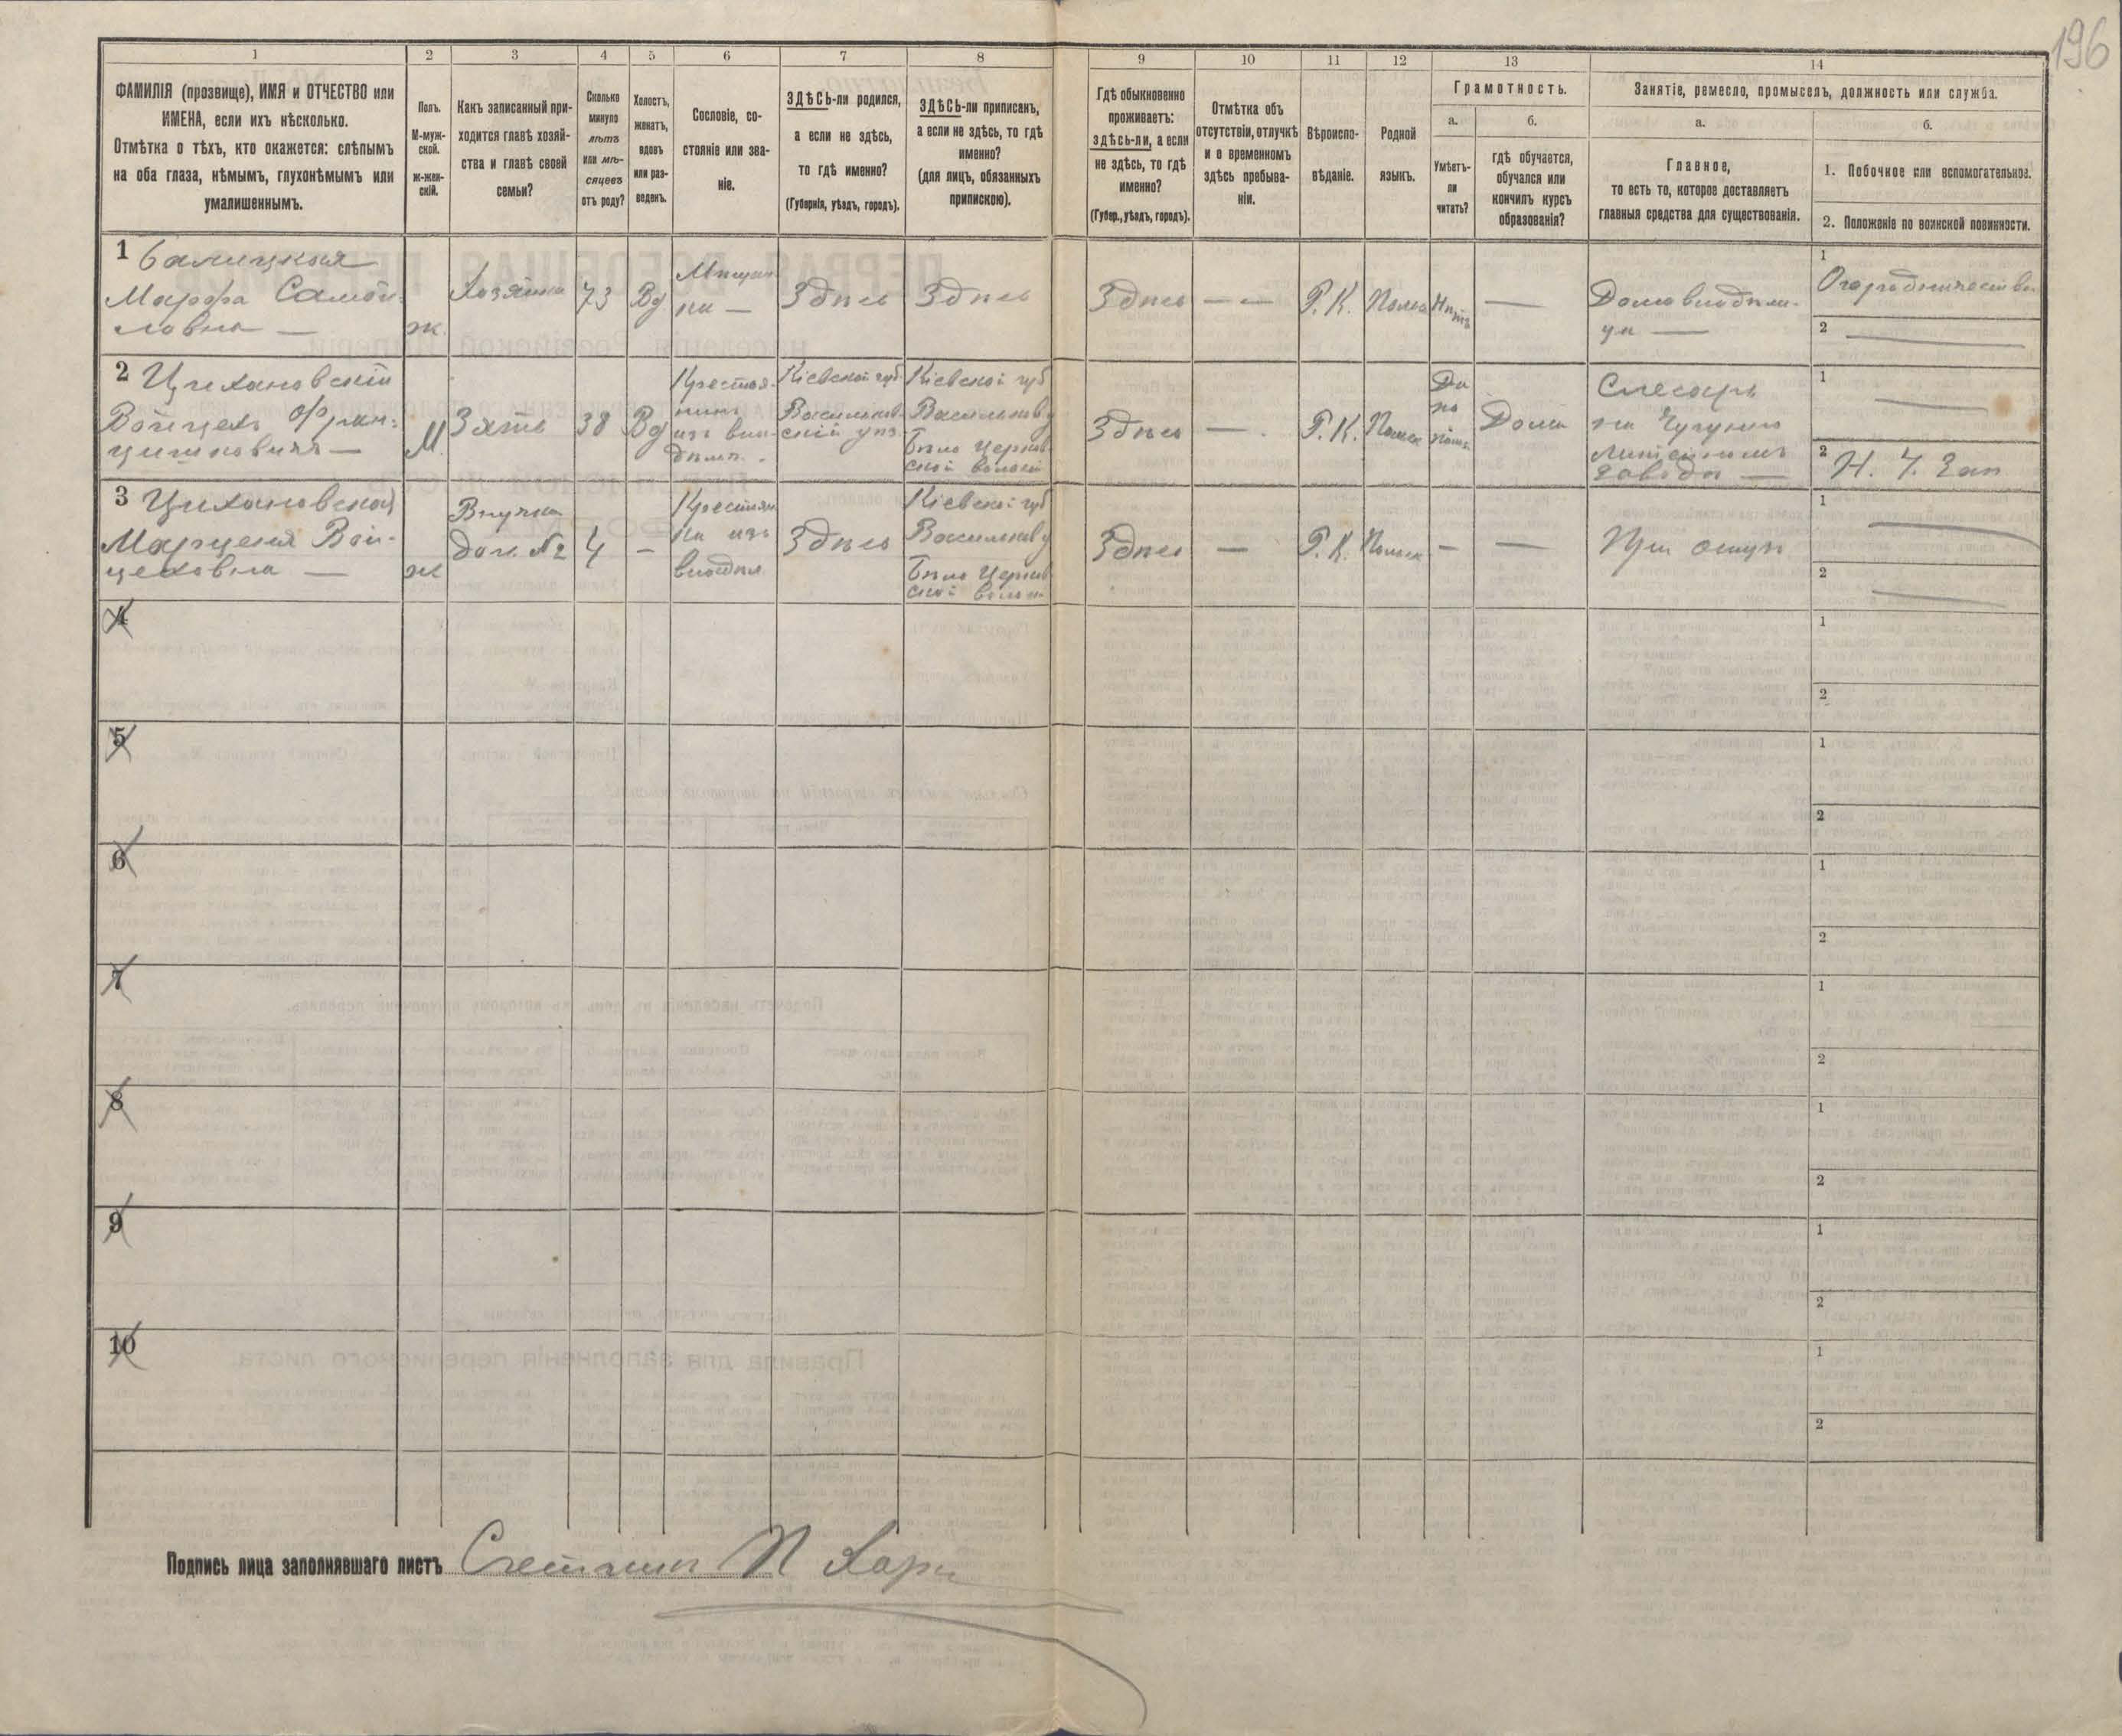 196
1
2
3
4
5
6
7
8
9
10
11
12
13
14
ФАМИЛІЯ (прозвище), ИМЯ и ОТЧЕСТВО или
ИМЕНА, если ихъ нѣсколько.
Отмѣтка о тѣхъ, кто окажется: слѣпымъ
на оба глаза, нѣмымъ, глухонѣмымъ или
умалишеннымъ.
Полъ.
М-муж-
ской.
ж-жен-
скій.
Какъ записанный при-
ходится главѣ хозяй-
ства и главѣ своей
семьи?
Сколько
минуло
лѣтъ
или мѣ-
сяцевъ
отъ роду?
Холостъ,
женатъ,
вдовъ
или раз-
веденъ.
Сословіе, со-
стояніе или зва-
ніе.
ЗДѢСЬ-ли родился,
а если не здѣсь,
то гдѣ именно?
(Губернія, уѣздъ, городъ).
ЗДѢСЬ-ли приписанъ,
а если не здѣсь, то гдѣ
именно?
(для лицъ, обязанныхъ
припискою).
Гдѣ обыкновенно
проживаетъ:
здѣсь-ли, а если
не здѣсь, то гдѣ
именно?
(Губер., уѣздъ, городъ).
Отмѣтка объ
отсутствіи, отлучкѣ
и о временномъ
здѣсь пребыва-
ніи.
Вѣроиспо-
вѣданіе.
Родной
языкъ.
Грамотность.
а.
Умѣетъ-
ли
читать?
б.
гдѣ обучается,
обучался или
кончилъ курсъ
образованія?
Занятіе, ремесло, промыселъ, должность или служба.
а.
Главное,
то есть то, которое доставляетъ
главныя средства для существованія.
б.
1. Побочное или вспомогательное.
2. Положеніе по воинской повинности.
1 Балицкая
Марфа Самой-
ловна —
ж.
Хозяйка
73
Вд
Мѣщан
ка —
Здѣсь
Здѣсь
Здѣсь
— —
Р. К.
Польск
Нѣтъ
—
Домовладѣли-
ца —
1
Огородничество
2 —
2 Цихановскій
Войцехъ Фран-
цишковичъ —
М.
Зять
38
Вд
Крестья-
нинъ
изъ вла-
дѣльч.
Кіевской губ.
Васильков-
скій уѣз.
Кіевской губ
Васильков у
Бѣло Церков
ской волости
Здѣсь
—
Р. К.
Польск
Да
по
польс
Дома
Слесарь
на Чугунно
литейномъ
заводѣ —
1 —
2 Н. Ч. Зап
3 Цихановская
Марцеля Вой-
цеховна —
ж
Внучка
доч. №2
4
—
Крестьян
ка изъ
владѣл
Здѣсь
Кіевской губ
Васильков у
Бѣло Церков
ской волости
Здѣсь
—
Р. К.
Польск
—
—
При отцѣ
1 —
2 —
4
1
2
5
1
2
6
1
2
7
1
2
8
1
2
9
1
2
10
1
2
Подпись лица заполнявшаго листъ Счетчикъ П